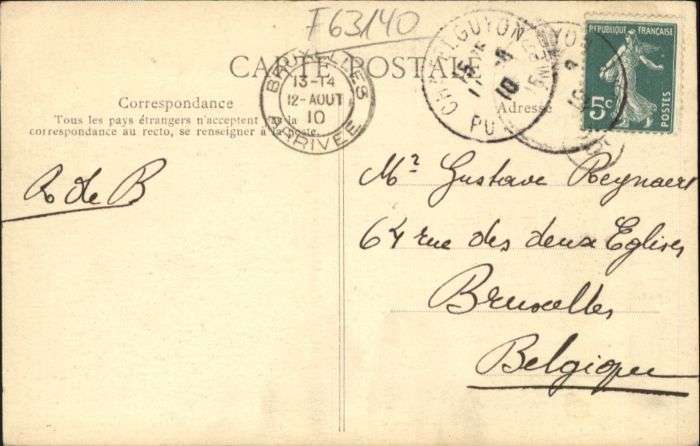 F63140
CARTE POSTALE
BRUXELLES
13-14
12-AOUT
10
ARRIVÉE
CHATEL-GUYON
10
PUY
RÉPUBLIQUE FRANÇAISE
5c
POSTES
Correspondance
Tous les pays étrangers n'acceptent pas la
correspondance au recto, se renseigner à la Poste.
Adresse
R de B
Mr Gustave Reynaert
64 rue des deux Eglises
Bruxelles
Belgique